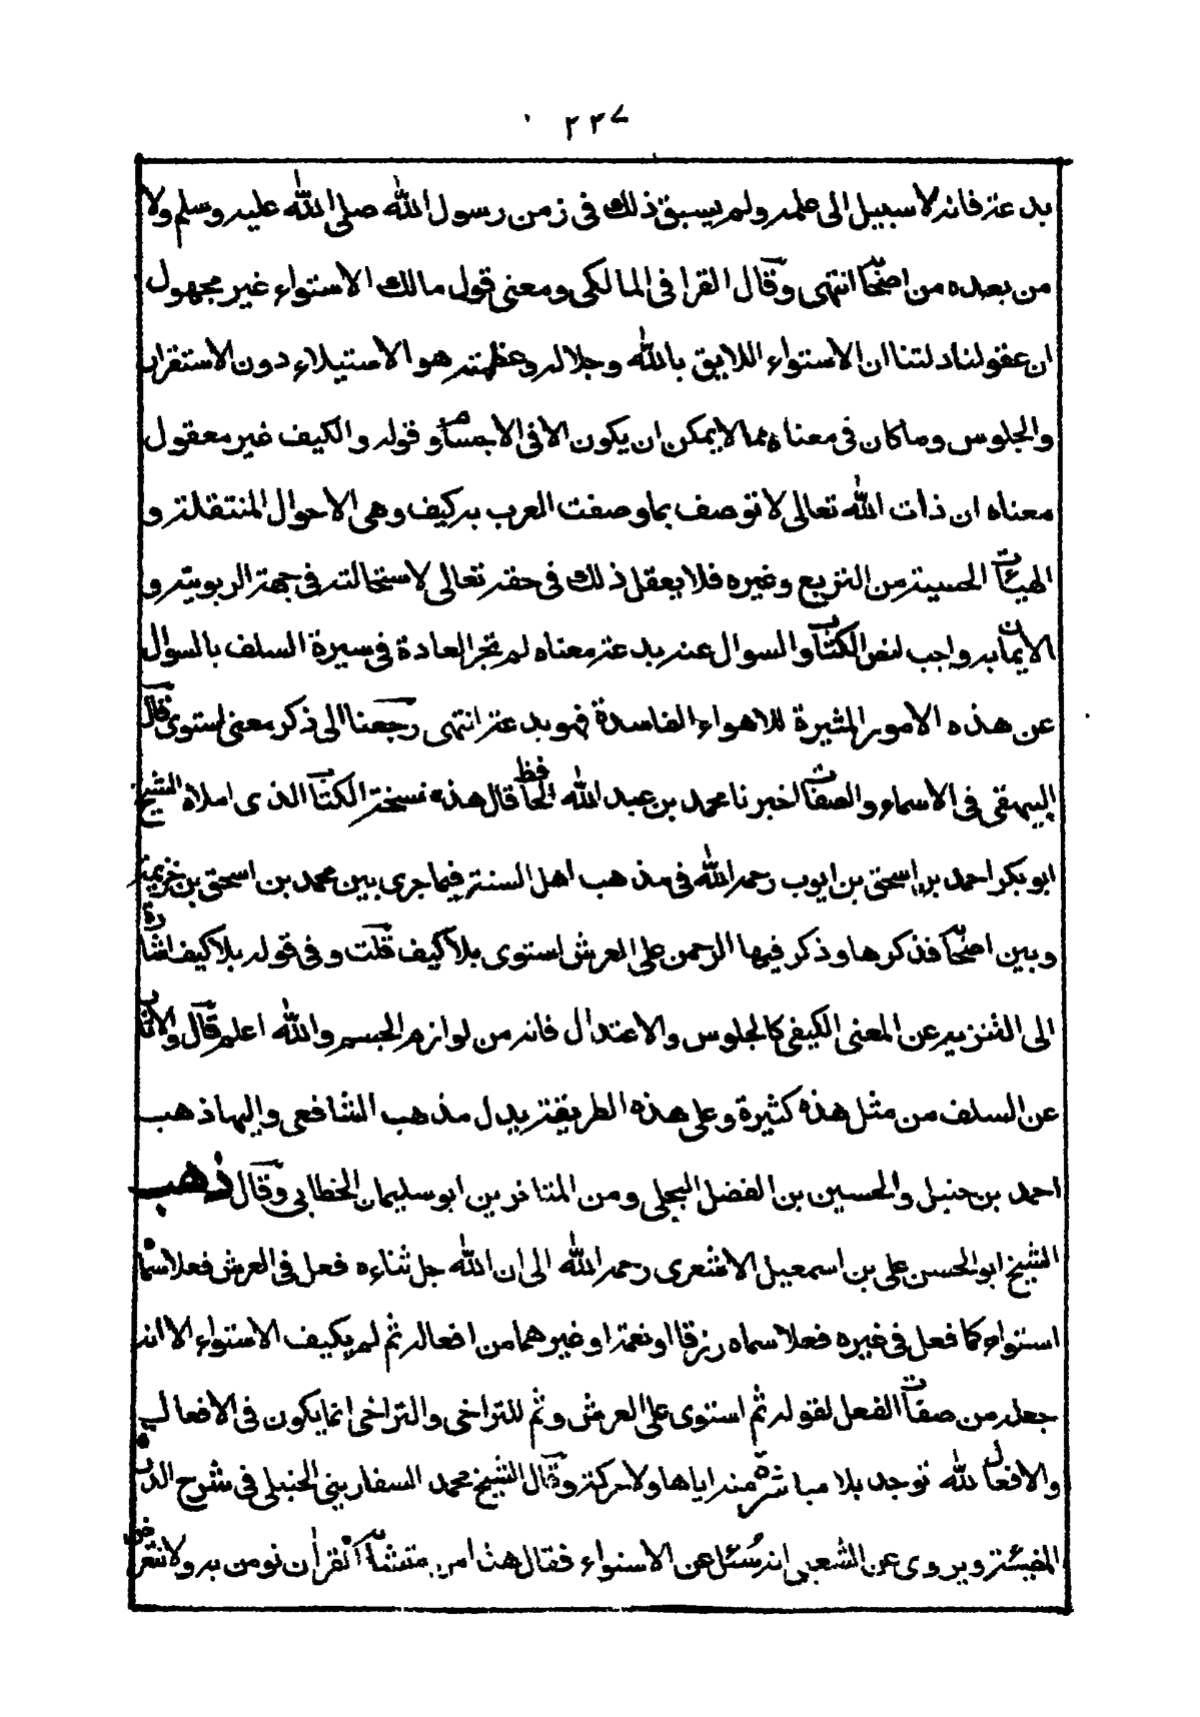 ٢٢٧
بدعة فانه لا سبيل الى علمه ولم يسبق ذلك فى زمن رسول الله صلى الله عليه وسلم ولا
من بعده من اصحابه انتهى وقال القرافى المالكى ومعنى قول مالك الاستواء غير مجهول
ان عقولنا دلتنا ان الاستواء اللايق بالله وجلاله وعظمته هو الاستيلاء دون الاستقرار
والجلوس وما كان فى معناه مما لا يمكن ان يكون الا فى الاجسام وقوله والكيف غير معقول
معناه ان ذات الله تعالى لا توصف بما وصفت العرب به كيف وهى الاحوال المنتقلة و
الهيئات الحسية من التربع وغيره فلا يعقل ذلك فى حقه تعالى لاستحالته فى جهة الربوبية و
الايمان به واجب لنص الكتاب والسوال عنه بدعة معناه لم تجر العادة فى سيرة السلف بالسوال
عن هذه الامور المثيرة للاهواء الفاسدة فهو بدعة انتهى رجعنا الى ذكر معنى استوى قال
البيهقى فى الاسماء والصفات اخبرنا محمد بن عبد الله الحافظ قال هذه نسخة الكتاب الذى املاه الشيخ
ابو بكر احمد بن اسحق بن ايوب رحمه الله فى مذهب اهل السنة فيما جرى بين محمد بن اسحق بن خزيمة
وبين اصحابه فذكرها وذكر فيها الرحمن على العرش استوى بلا كيف قلت وفى قوله بلا كيف اشارة
الى التنزيه عن المعنى الكيفى كالجلوس والاعتدال فانه من لوازم الجسم والله اعلم قال والاثار
عن السلف من مثل هذه كثيرة وعلى هذه الطريقة يدل مذهب الشافعى واليها ذهب
احمد بن حنبل والحسين بن الفضل البجلى ومن المتاخرين ابو سليمان الخطابى وقال ذهب
الشيخ ابو الحسن على بن اسمعيل الاشعرى رحمه الله الى ان الله جل ثناءه فعل فى العرش فعلا سماه
استواء كما فعل فى غيره فعلا سماه رزقا او نعمة او غيرهما من افعاله ثم لم يكيف الاستواء الا انه
جعله من صفات الفعل لقوله ثم استوى على العرش وثم للتراخى والتراخى انما يكون فى الافعال
والافعال لله توجد بلا مباشرة منه اياها ولا حركة وقال الشيخ محمد السفارينى الحنبلى فى شرح الدرة
المضيئة ويروى عن الشعبى انه سُئل عن الاستواء فقال هذا من متشابه القرآن نومن به ولا نتعرض